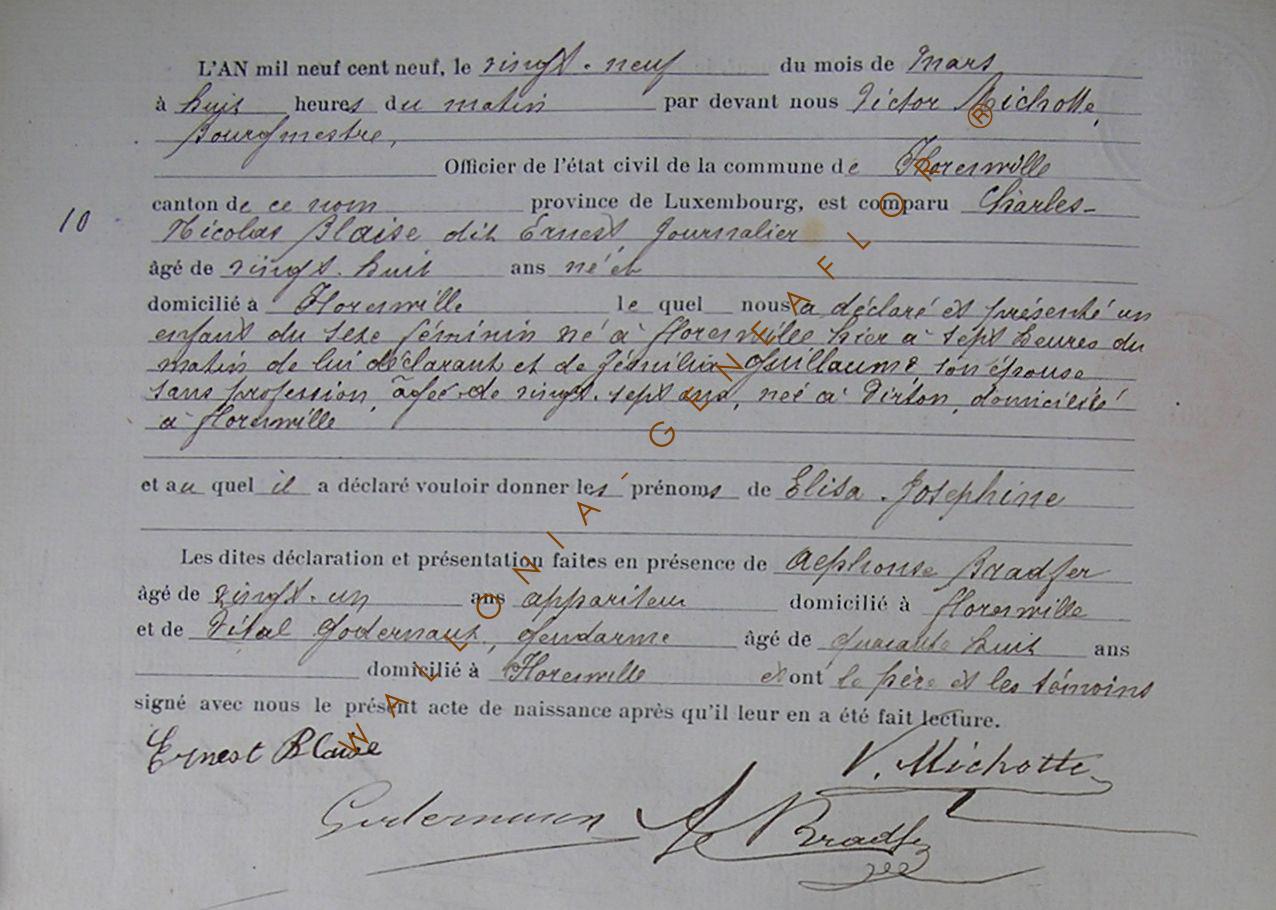 L'AN mil neuf cent neuf, le vingt-neuf du mois de Mars
à huit heures du matin par devant nous Victor Michotte,
Bourgmestre,
Officier de l'état civil de la commune de Florenville
canton de ce nom province de Luxembourg, est comparu Charles-
10
Nicolas Blaise dit Ernest, Journalier
âgé de vingt-huit ans né et
domicilié à Florenville le quel nous a déclaré et présenté un
enfant du sexe féminin né à Florenville hier à sept heures du
matin de lui déclarant et de Guillaume son épouse
sans profession, âgée de vingt-sept ans, née à Virton, domiciliée
à Florenville
et au quel il a déclaré vouloir donner les prénoms de Elisa-Josephine
Les dites déclaration et présentation faites en présence de Alphonse Bradfer
âgé de vingt-un ans appariteur domicilié à Florenville
et de Vital Godernaux, Gendarme âgé de quarante huit ans
domicilié à Florenville et ont le père et les témoins
signé avec nous le présent acte de naissance après qu'il leur en a été fait lecture.
Ernest Blaise
V. Michotte
Godernaux A Bradfer
WALLONIA-GENEAFLOR®